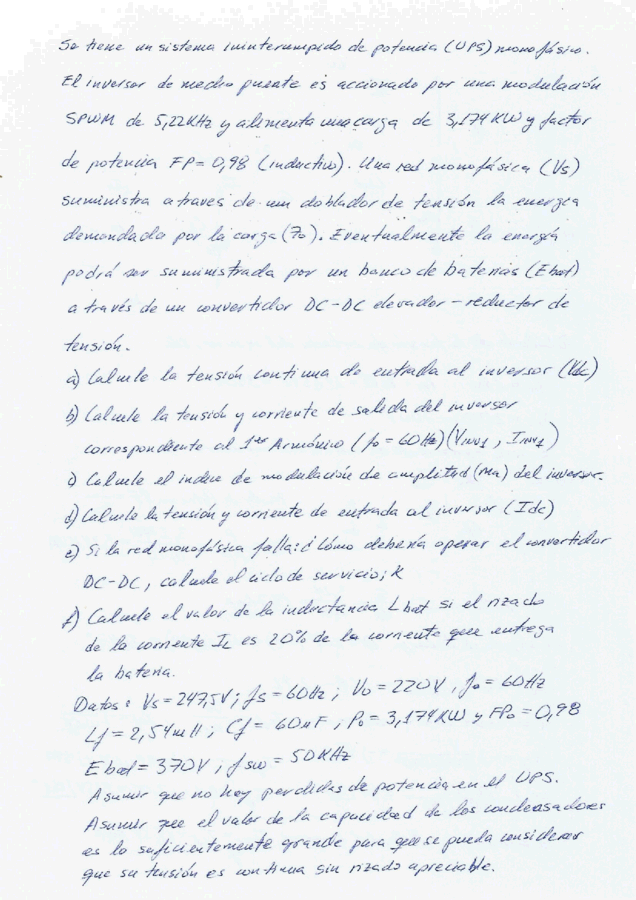 Se tiene un sistema ininterrumpido de potencia (UPS) monofásico.
El inversor de medio puente es accionado por una modulación
SPWM de 5,22KHz y alimenta una carga de 3,174 KW y factor
de potencia FP= 0,98 (inductivo). Una red monofásica (Vs)
suministra a traves de un doblador de tensión la energía
demandada por la carga (Zo). Eventualmente la energía
podrá ser suministrada por un banco de baterias (Ebat)
a través de un convertidor DC-DC elevador-reductor de
tensión.
a) Calcule la tensión continua de entrada al inversor (Vdc)
b) Calcule la tensión y corriente de salida del inversor
correspondiente al 1er Armónico (fo = 60Hz) (VINV1, IINV1)
c) Calcule el indice de modulación de amplitud (ma) del inversor.
d) Calcule la tensión y corriente de entrada al inversor (Idc)
e) Si la red monofásica falla: ¿Cómo debería operar el convertidor
DC-DC, calcule el ciclo de servicio; K
f) Calcule el valor de la inductancia Lbat si el rizado
de la corriente IL es 20% de la corriente que entrega
la bateria.
Datos: Vs = 247,5V; fs = 60Hz; Vo = 220V, fo = 60Hz
Lf = 2,54mH; Cf = 60uF; Po = 3,174KW y FPo = 0,98
Ebat = 370V; fsw = 50KHz
Asumir que no hay perdidas de potencia en el UPS.
Asumir que el valor de la capacidad de los condensadores
es lo suficientemente grande para que se pueda considerar
que su tensión es continua sin rizado apreciable.